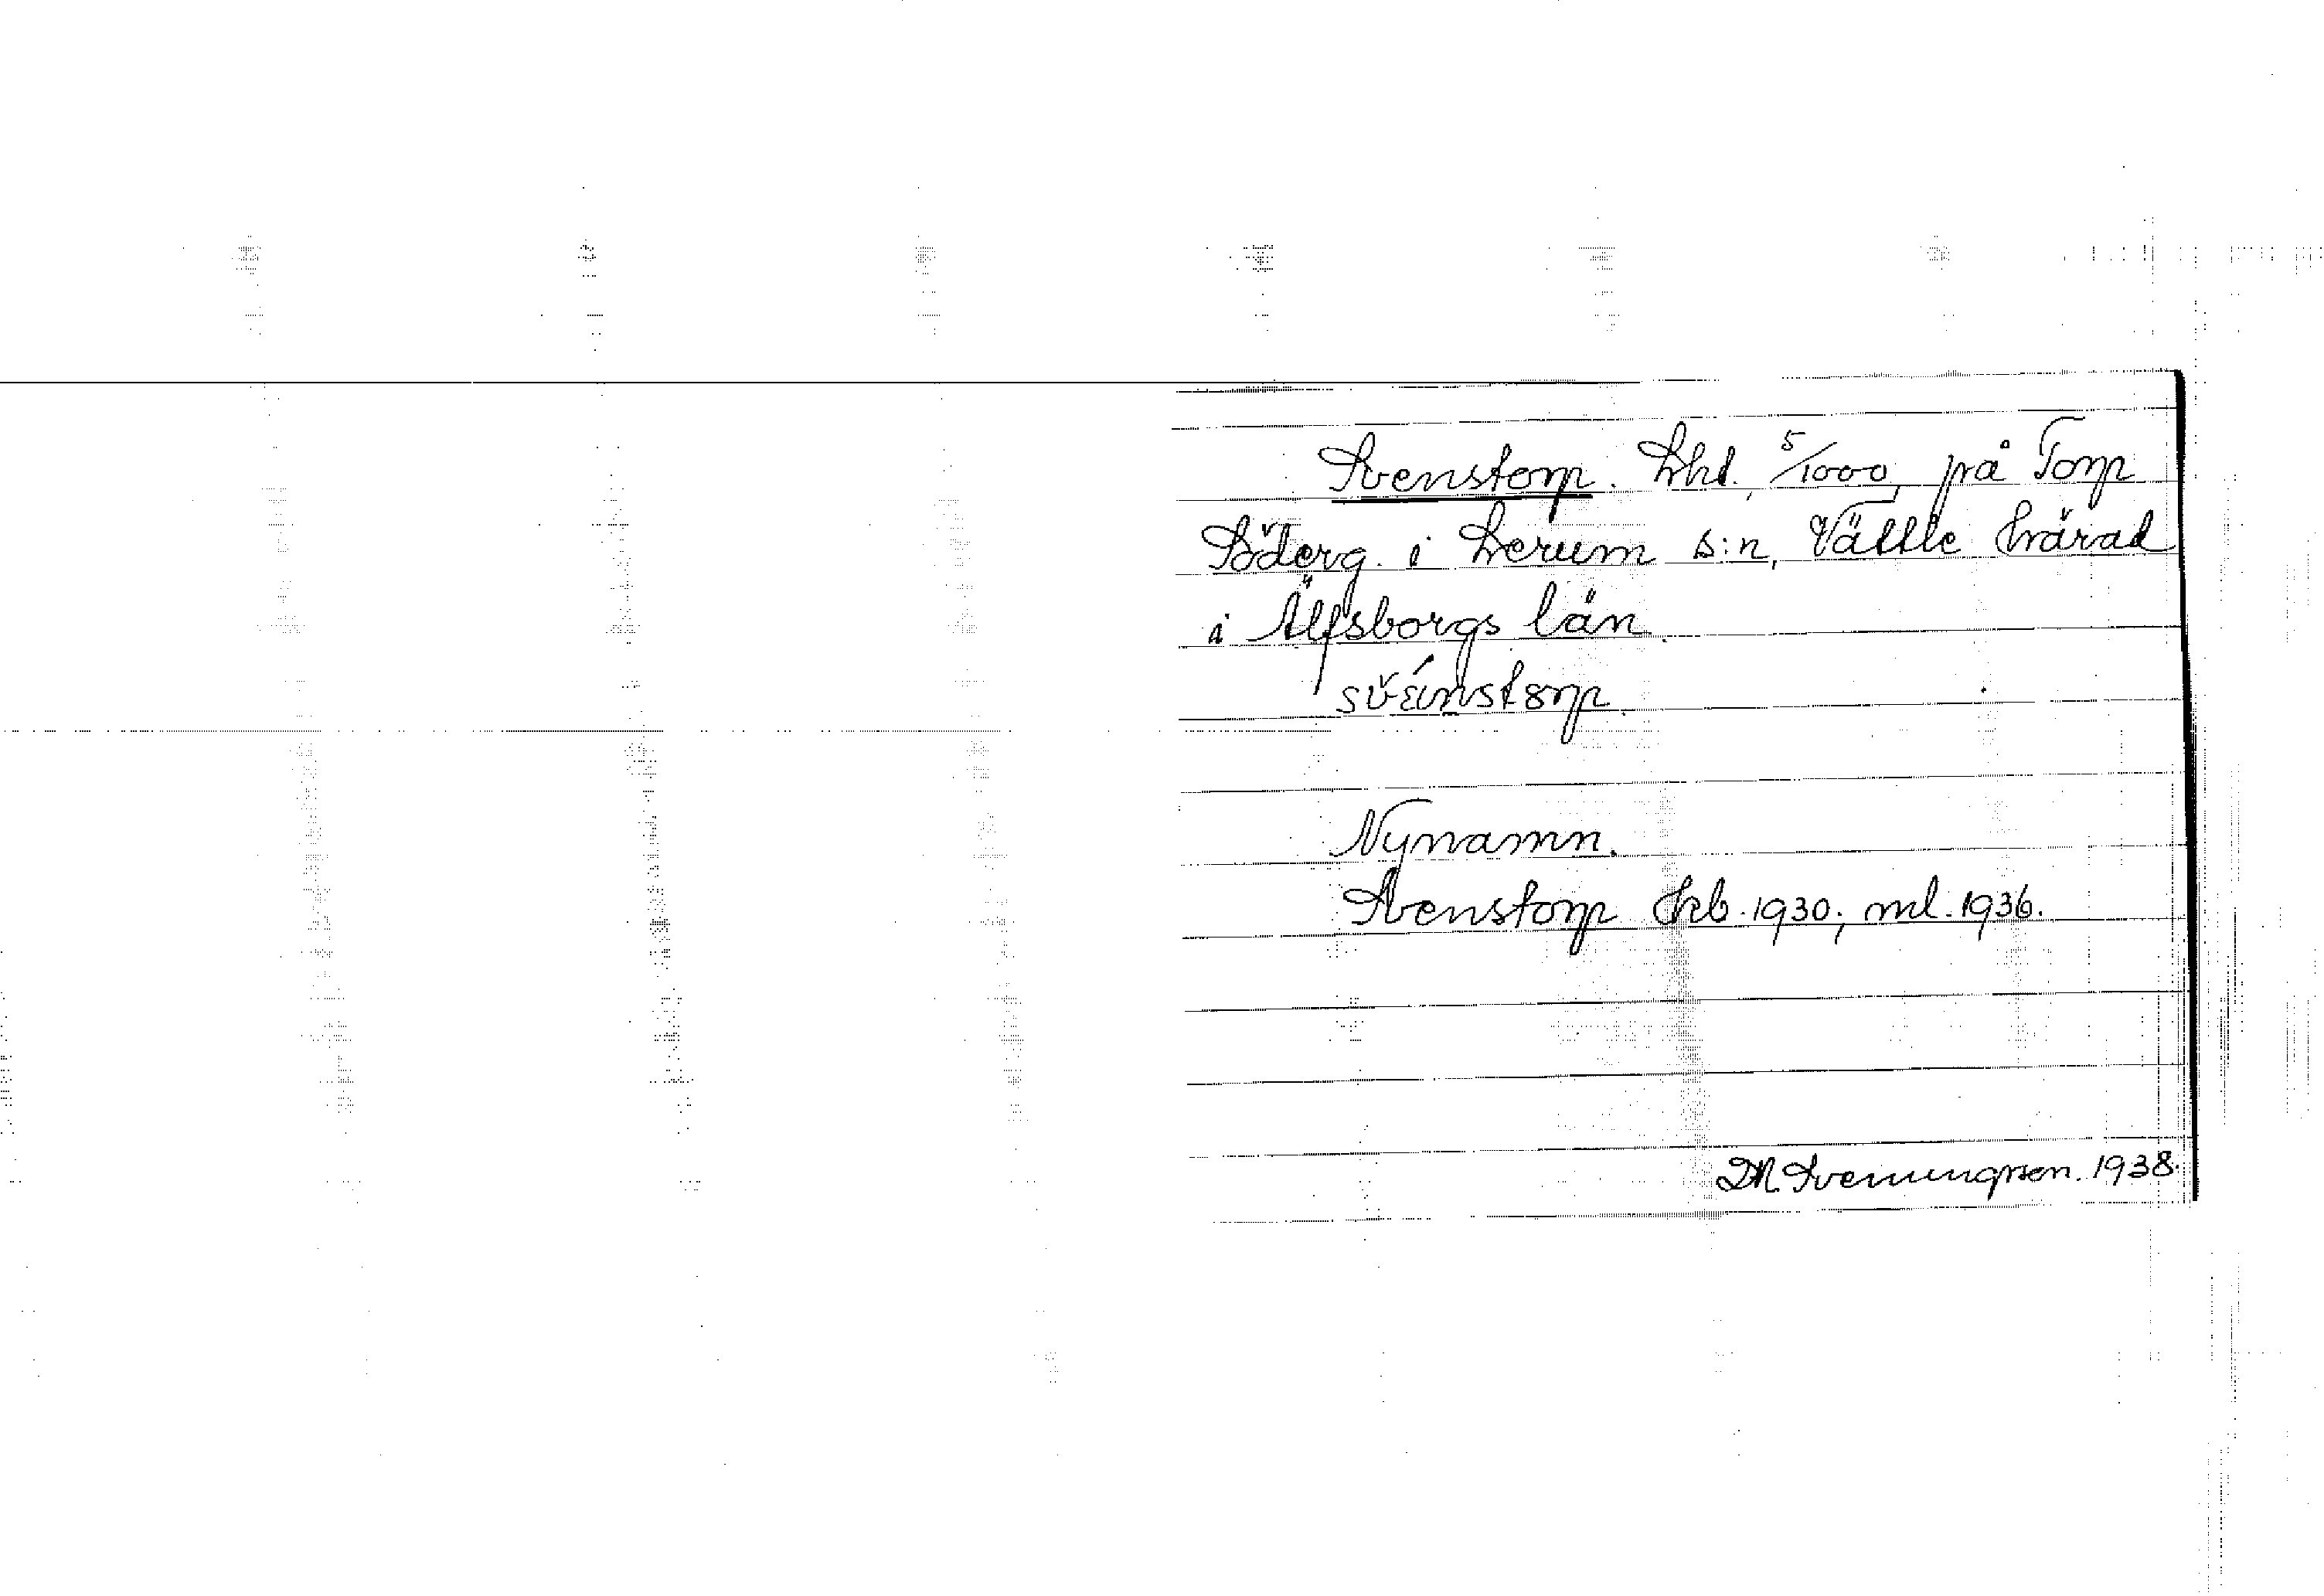 Svenstorp. Lht., 5/1000, på Torp
Söderg. i Lerum s:n, Vättle härad
i Älfsborgs län.
Nynamn.
Svenstorp hrb. 1930; ml. 1936.
DM Svenungsson. 1938.